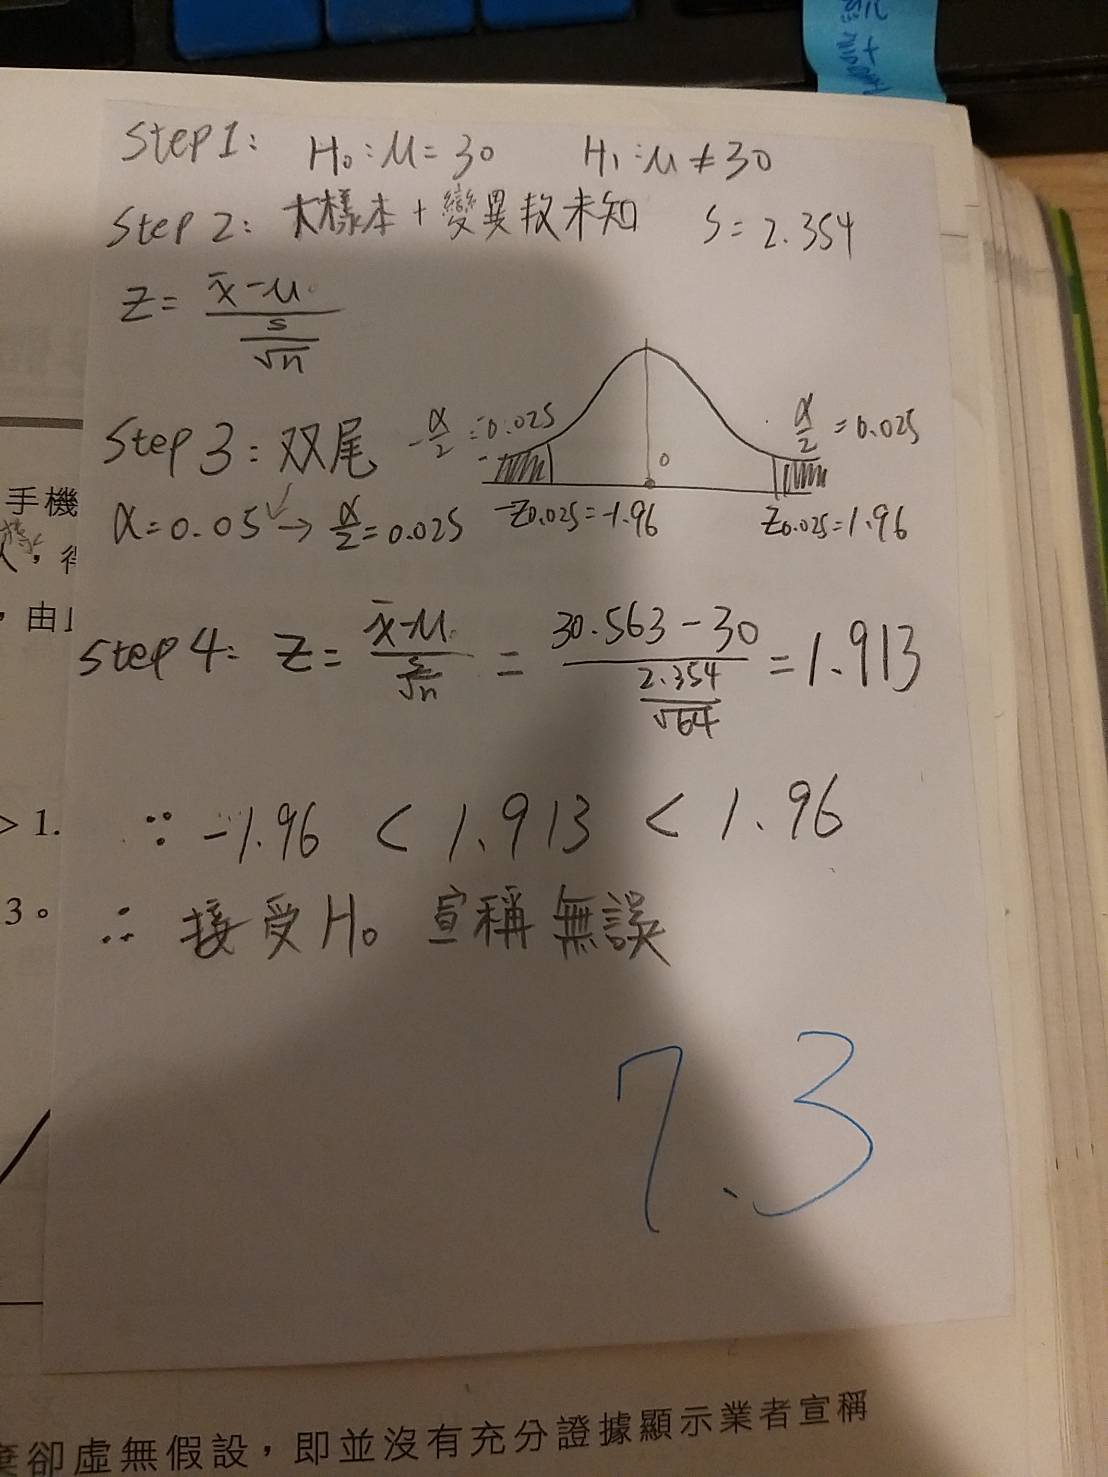 統
Step 1: H₀:μ=30 H₁:μ≠30
Step 2: 大樣本+變異數未知 S=2.354
Z= (x̄-μ₀)/(s/√n)
Step 3: 双尾 -α/2=0.025 α/2=0.025
0
α=0.05→α/2=0.025 -Z0.025=-1.96 Z0.025=1.96
手機
，由
Step 4: Z= (x̄-μ₀)/(s/√n) = (30.563-30)/(2.354/√64) =1.913
> 1.
∵ -1.96 < 1.913 < 1.96
3。
∴ 接受H₀ 宣稱無誤
7.3
棄卻虛無假設，即並沒有充分證據顯示業者宣稱